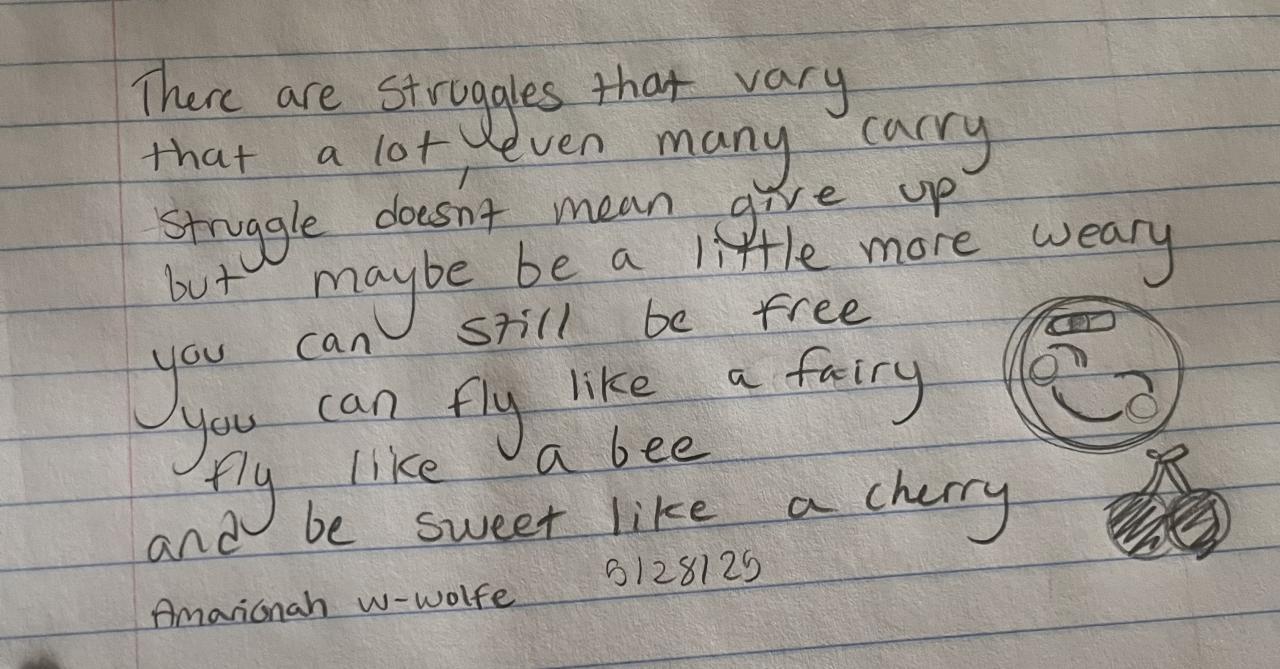 There are struggles that vary
that a lot, even many carry
struggle doesn't mean give up
but maybe be a little more weary
you can still be free
you can fly like a fairy
fly like a bee
and be sweet like a cherry
Amarionah w-wolfe 5/28/25